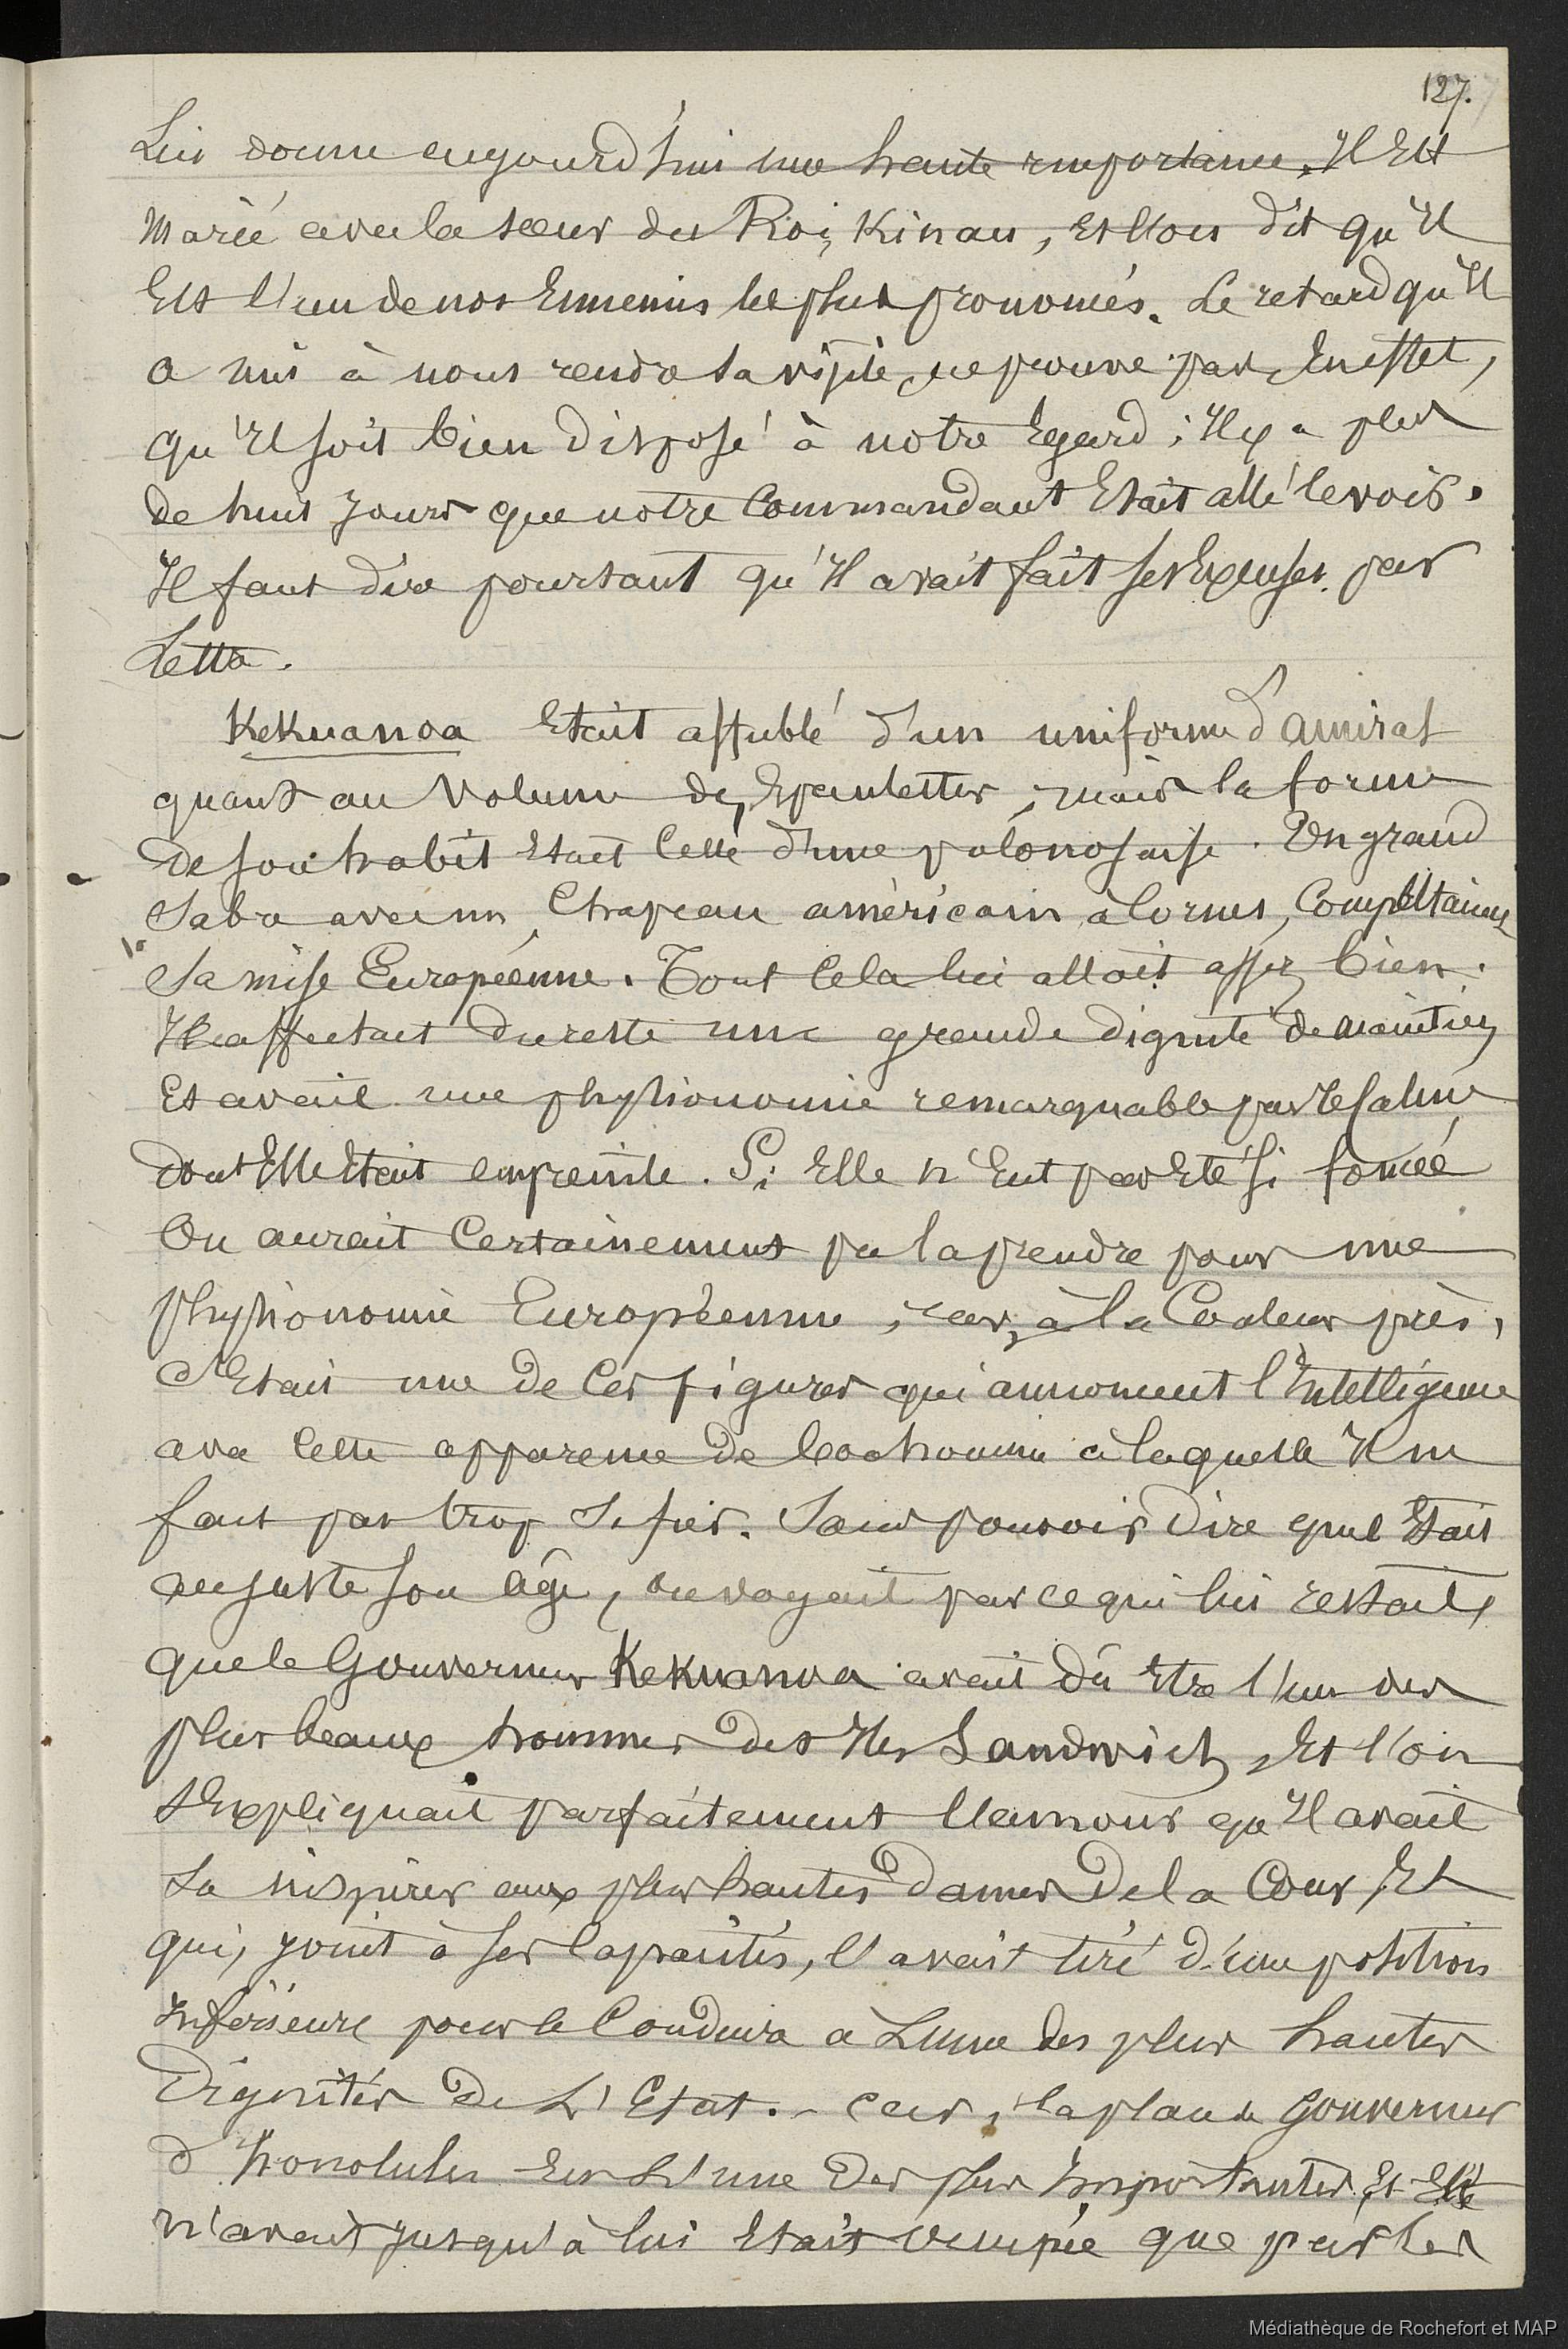 127.
Lui donne aujourd'hui une haute importance. Il Est
Marié avec la sœur du Roi, Kinau, Et l'on dit qu'Il
Est l'un de nos Ennemis les plus prononcés. Le retard qu'Il
a mis à nous rendre sa visite, ne prouve pas, En effet,
qu'Il soit bien disposé à notre Egard ; Il y a plus
de huit Jours que notre Commandant Etait allé le voir.
Il faut dire pourtant qu'Il avait fait ses Excuses par
Lettre.
Kekuanoa Etait affublé d'un uniforme d'amiral
quant au Volume des Epaulettes, mais la forme
de son habit Etait Celle d'une polonosaise. Un grand
Sabre avec un Chapeau américain à Cornes, Complétaient
Sa mise Européenne. Tout Cela lui allait assez bien.
Il affectait du reste une grande dignité de maintien
Et avait une physionomie remarquable par le Calme
dont Elle Etait empreinte. Si Elle n'Eut pas Eté si foncée
On aurait Certainement pu la prendre pour une
physionomie Européenne, car, à la Couleur près,
C'Etait une de Ces figures qui annoncent l'Intelligence
avec Cette apparence de bonhommie à laquelle Il ne
faut pas trop Se fier. Sans pouvoir dire quel Etait
au juste son âge, on voyait par ce qui lui restait,
que le Gouverneur Kekuanoa avait dû Etre l'un des
plus beaux hommes des Iles Sandwich, Et l'on
S'Expliquait parfaitement l'amour qu'Il avait
Su inspirer aux plus hautes dames De la Cour, Et
qui, joint à ses Capacités, l'avait tiré d'une position
Inférieure pour le Conduire à L'une des plus hautes
Dignités De L'Etat. - Car, la place de Gouverneur
d'honolulu Est L'une Des plus Importantes, Et Elle
n'avait jusqu'à lui Etait occupée que par les